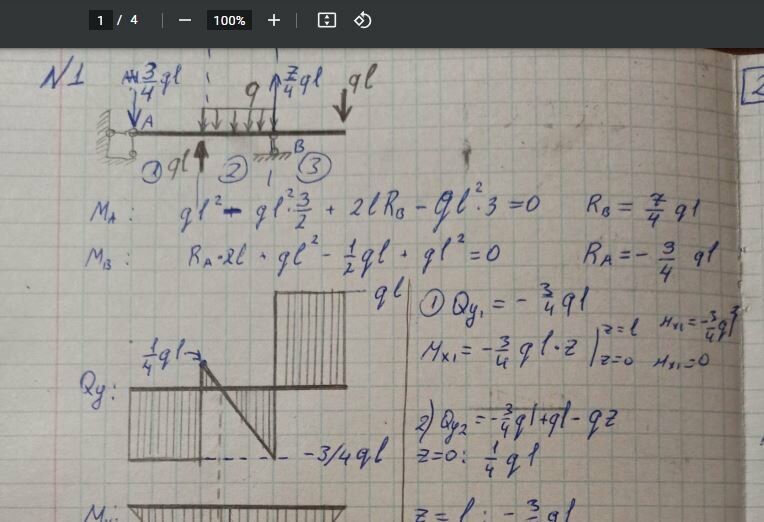 1 / 4 100%
N1 3/4 ql q 7/4 ql ql 2
A B
① ql ② ③
M_A: ql² - ql²·3/2 + 2lR_B - ql²·3 = 0 R_B = 7/4 ql
M_B: R_A·2l + ql² - 1/2 ql + ql² = 0 R_A = - 3/4 ql
ql
① Qy₁ = - 3/4 ql
Mx₁ = - 3/4 ql·z | z=l z=0 Mx₁ = -3/4 ql² Mx₁=0
1/4 ql
Qy:
2) Qy₂ = -3/4 ql + ql - qz
z=0: 1/4 ql
-3/4 ql
z = l : - 3/ ql